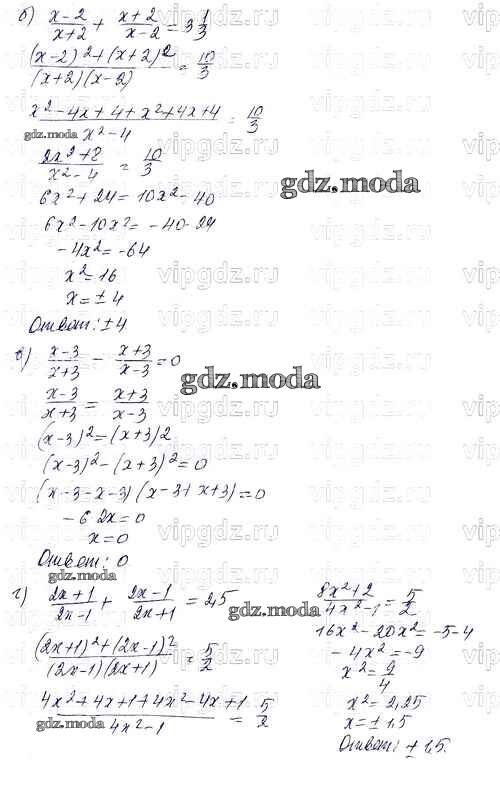 б) (x-2)/(x+2) + (x+2)/(x-2) = 3 1/3
((x-2)²+(x+2)²)/((x+2)(x-2)) = 10/3
(x²-4x+4+x²+4x+4)/(x²-4) = 10/3
gdz.moda
(2x²+8)/(x²-4) = 10/3
6x²+24=10x²-40
6x²-10x²=-40-24
-4x²=-64
x²=16
x=±4
Ответ: ±4
в) (x-3)/(x+3) - (x+3)/(x-3) = 0
(x-3)/(x+3) = (x+3)/(x-3)
(x-3)²=(x+3)2
(x-3)²-(x+3)²=0
(x-3-x-3)(x-3+x+3)=0
-6 2x=0
x=0
Ответ: 0
г) (2x+1)/(2x-1) + (2x-1)/(2x+1) = 2,5
((2x+1)²+(2x-1)²)/((2x-1)(2x+1)) = 5/2
(4x²+4x+1+4x²-4x+1)/(4x²-1) = 5/2
gdz.moda
(8x²+2)/(4x²-1) = 5/2
16x²-20x²=-5-4
-4x²=-9
x²=9/4
x²=2,25
x=±1,5
Ответ: ±1,5.
gdz.moda
gdz.moda
gdz.moda
vipgdz.ru